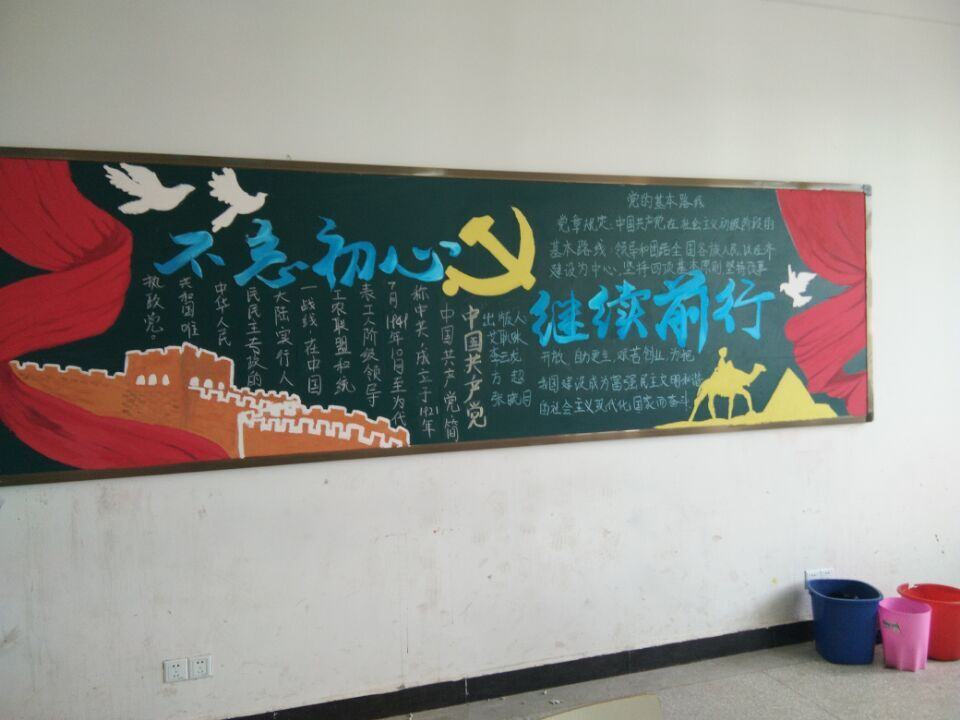 不忘初心
继续前行
中国共产党
中国共产党,简
称中共,成立于1921年
7月,1949年10月至为代
表工人阶级领导
工农联盟和统
一战线,在中国
大陆实行人
民民主专政的
中华人民
共和国唯一
执政党。
党的基本路线
党章规定:中国共产党在社会主义初级阶段的
基本路线:领导和团结全国各族人民,以经济
建设为中心,坚持四项基本原则,坚持改革
开放,自力更生,艰苦创业,为把
我国建设成为富强民主文明和谐
的社会主义现代化国家而奋斗
出版人
李云龙
方超